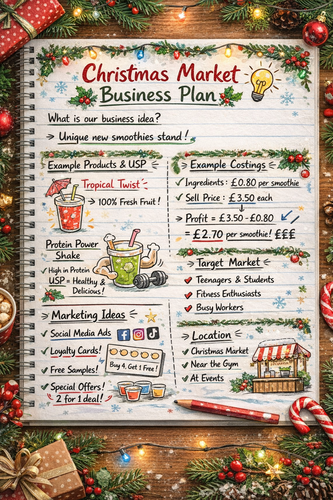 Christmas Market
Business Plan
What is our business idea?
→ Unique new smoothies stand!
Example Products & USP
Tropical Twist
→ 100% Fresh Fruit!
Protein Power
Shake
✓ High in Protein
USP = Healthy &
Delicious!
Marketing Ideas
✓ Social Media Ads
✓ Loyalty Cards!
Buy 4, Get 1 Free!
✓ Free Samples!
✓ Special Offers!
2 for 1 deal!
Example Costings
✓ Ingredients: £0.80 per smoothie
✓ Sell Price: £3.50 each
→ Profit = £3.50 - £0.80
= £2.70 per smoothie! £££
Target Market
Teenagers & Students
Fitness Enthusiasts
Busy Workers
Location
✓ Christmas Market
✓ Near the Gym
✓ At Events